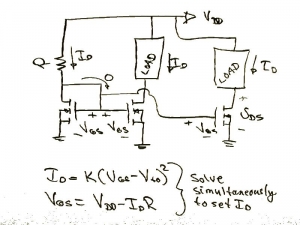 VDD
R
ID
LOAD
ID
LOAD
ID
O
+
+ +
VGS VGS
- -
+
VGS
-
+
VDS
-
ID = K(VGS - Vto)²
VGS = VDD - IDR
Solve
simultaneously
to set ID